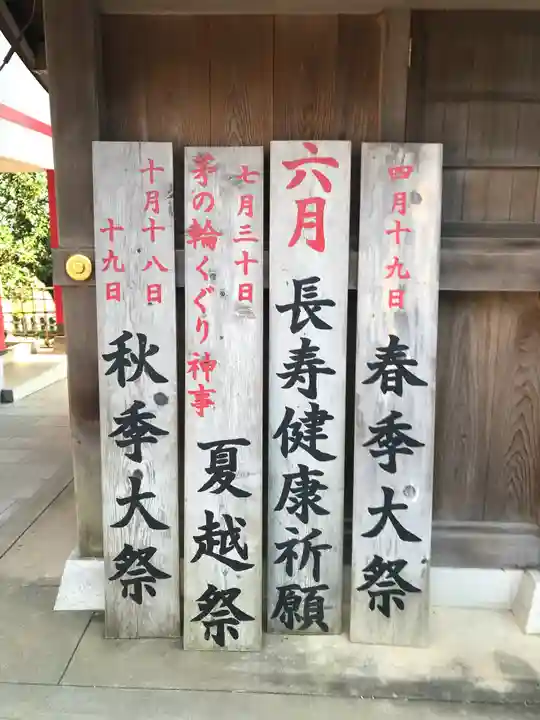 四月十九日
春季大祭
六月
長寿健康祈願
七月三十日
茅の輪くぐり神事
夏越祭
十月十八日
十九日
秋季大祭